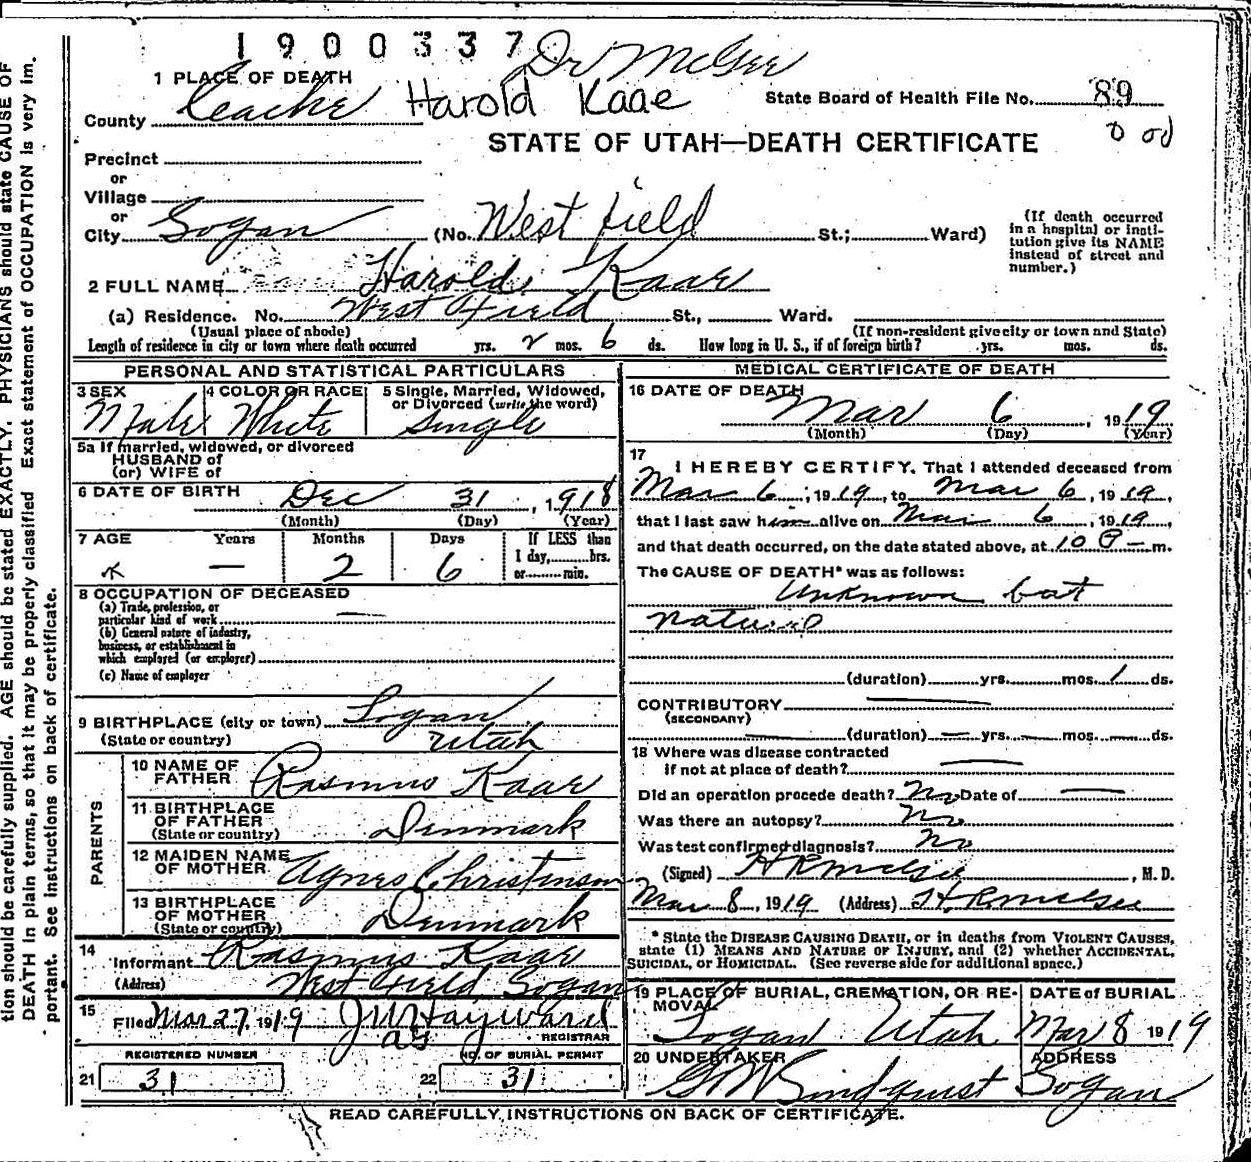 1900337
Dr McGee
1 PLACE OF DEATH
County Cache Harold Kaae State Board of Health File No. 89
STATE OF UTAH—DEATH CERTIFICATE
Precinct
or
Village
or
City Logan (No. West field St.; Ward)
(If death occurred in a hospital or insti-
tution give its NAME instead of street and number.)
2 FULL NAME Harold Kaae
(a) Residence. No. West Field St., Ward.
(Usual place of abode) (If non-resident give city or town and State)
Length of residence in city or town where death occurred yrs. 2 mos. 6 ds. How long in U. S., if of foreign birth? yrs. mos. ds.
PERSONAL AND STATISTICAL PARTICULARS
3 SEX Male
4 COLOR OR RACE White
5 Single, Married, Widowed, or Divorced (write the word) Single
5a If married, widowed, or divorced
HUSBAND of
(or) WIFE of
6 DATE OF BIRTH Dec 31, 1918
(Month) (Day) (Year)
7 AGE Years Months Days If LESS than
— 2 6 1 day, hrs.
or min.
8 OCCUPATION OF DECEASED
(a) Trade, profession, or
particular kind of work —
(b) General nature of industry,
business, or establishment in
which employed (or employer)
(c) Name of employer
9 BIRTHPLACE (city or town) Logan
(State or country) Utah
PARENTS
10 NAME OF FATHER Rasmus Kaae
11 BIRTHPLACE OF FATHER (State or country) Denmark
12 MAIDEN NAME OF MOTHER Agnes Christensen
13 BIRTHPLACE OF MOTHER (State or country) Denmark
14
Informant Rasmus Kaae
(Address) West Field, Logan
15
Filed Mar 27, 1919 J W Hayward
REGISTRAR
REGISTERED NUMBER NO. OF BURIAL PERMIT
21 31 22 31
MEDICAL CERTIFICATE OF DEATH
16 DATE OF DEATH
Mar 6, 1919
(Month) (Day) (Year)
17
I HEREBY CERTIFY, That I attended deceased from
Mar 6, 1919, to Mar 6, 1919,
that I last saw him alive on Mar 6, 1919,
and that death occurred, on the date stated above, at 10 P— m.
The CAUSE OF DEATH* was as follows:
Unknown but
natural
(duration) yrs. mos. 1 ds.
CONTRIBUTORY —
(SECONDARY)
— (duration) — yrs. — mos. — ds.
18 Where was disease contracted
if not at place of death? —
Did an operation precede death? No Date of —
Was there an autopsy? No
Was test confirmed diagnosis? No
(Signed) H R McGee, M.D.
Mar 8, 1919 (Address) H. R McGee
* State the DISEASE CAUSING DEATH, or in deaths from VIOLENT CAUSES,
state (1) MEANS AND NATURE OF INJURY, and (2) whether ACCIDENTAL,
SUICIDAL, or HOMICIDAL. (See reverse side for additional space.)
19 PLACE OF BURIAL, CREMATION, OR RE-
MOVAL DATE of BURIAL
Logan Utah Mar 8 1919
20 UNDERTAKER ADDRESS
G W Lindquist Logan
READ CAREFULLY INSTRUCTIONS ON BACK OF CERTIFICATE.
tion should be carefully supplied. AGE should be stated EXACTLY. PHYSICIANS should state CAUSE OF
DEATH in plain terms, so that it may be properly classified Exact statement of OCCUPATION is very im-
portant. See instructions on back of certificate.